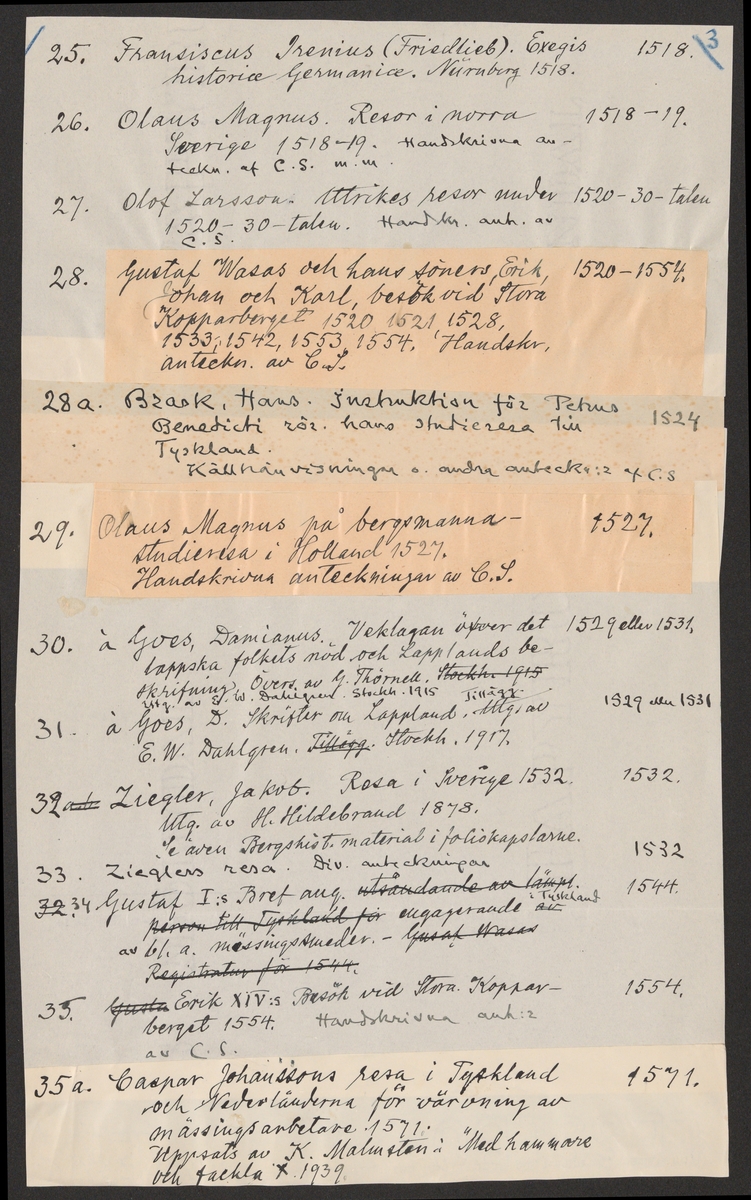 3
25. Fransiscus Irenius (Friedlieb). Exegis 1518.
historiæ Germaniæ. Nürnberg 1518.
26. Olaus Magnus. Resor i norra 1518-19.
Sverige 1518-19. Handskrivna an-
teckn. af C.S. m.m.
27. Olof Larsson. Utrikes resor under 1520-30-talen
1520-30-talen. Handskr. anh. av
C.S.
28. Gustaf Wasas och hans söners, Erik, 1520-1554.
Johan och Karl, besök vid Stora
Kopparberget 1520 1521, 1528,
1533, 1542, 1553, 1554. Handskr.
anteckn. av C.S.
28a. Brask, Hans. Instruktion för Petrus 1524
Benedicti rör. hans studieresa till
Tyskland.
Källhänvisningar o. andra anteckn:r af C.S
29. Olaus Magnus på bergsmanna- 1527.
studieresa i Holland 1527.
Handskrivna anteckningar av C.S.
30. à Goes, Damianus. Veklagan öfver det 1529 eller 1531.
lappska folkets nöd och Lapplands be-
skrifning. Övers. av G. Thörnell. Stockh. 1915
Utg. av E. W. Dahlgren. Stockh. 1915 Tillägg
31. à Goes, D. Skrifter om Lappland. Utg. av 1529 eller 1531
E. W. Dahlgren. Tillägg. Stockh. 1917.
32 Ziegler, Jakob. Resa i Sverige 1532. 1532.
Utg. av H. Hildebrand 1878.
Se även Bergshist. material i foliokapslarne.
33. Zieglers resa. Div. anteckningar 1532
32. 34 Gustaf I:s Bref ang. utsändande av lämpl. 1544.
person till Tyskland för engagerande av i Tyskland
av bl. a. mässingssmeder. - Gustaf Wasas
Registratur för 1544.
35. Gusta Erik XIV:s Besök vid Stora Koppar- 1554.
berget 1554. Handskrivna anh:r
av C.S.
35a. Caspar Johanssons resa i Tyskland 1571.
och Nederländerna för värvning av
mässingsarbetare 1571.
Uppsats av K. Malmsten i "Med hammare
och fackla X. 1939